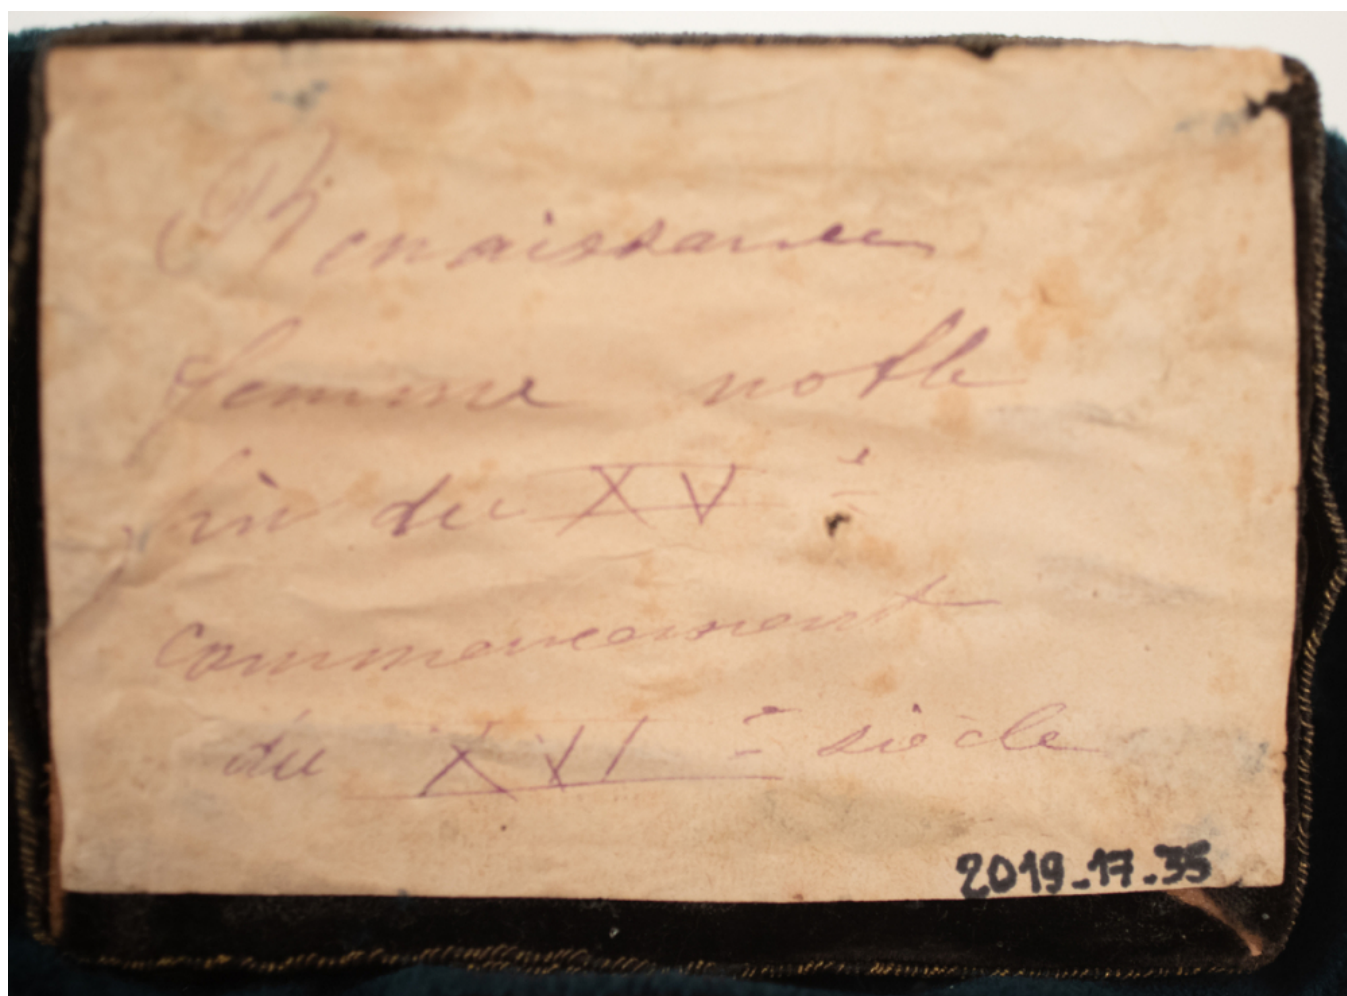 Renaissance
femme noble
fin du XV e
commencement
du XVI e siècle
2019-17-35